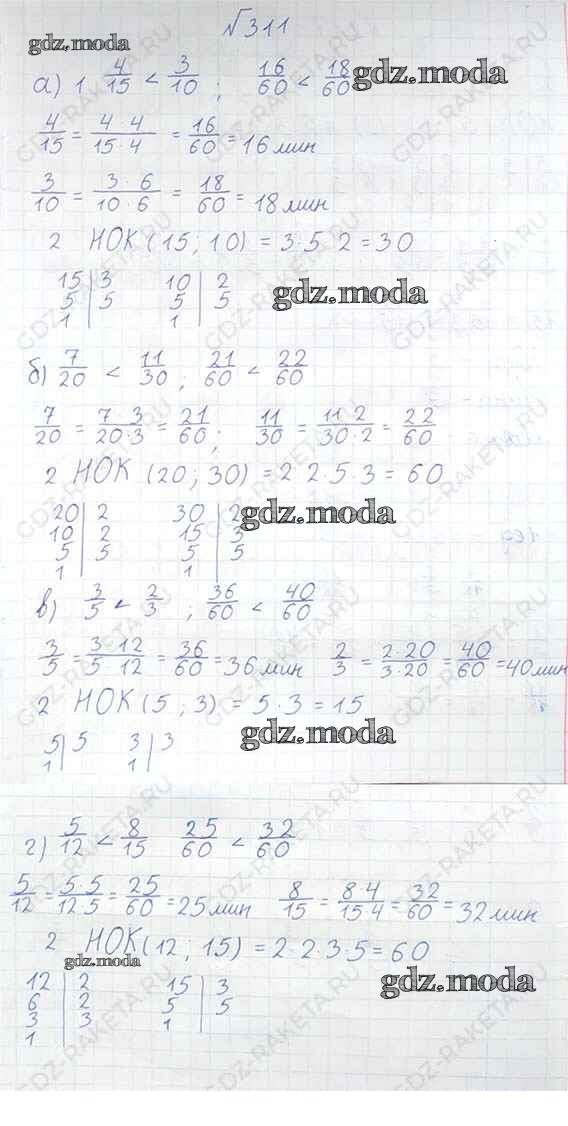 √311
gdz.moda
а) 1. 4/15 < 3/10 ; 16/60 < 18/60
gdz.moda
4/15 = 4 4/15·4 = 16/60 = 16 мин
3/10 = 3·6/10·6 = 18/60 = 18 мин
2 НОК (15; 10) = 3·5·2 = 30
15 | 3 10 | 2
5 | 5 5 | 5
1 | 1 |
gdz.moda
б) 7/20 < 11/30 ; 21/60 < 22/60
7/20 = 7·3/20·3 = 21/60 ; 11/30 = 11·2/30·2 = 22/60
2 НОК (20; 30) = 2 2·5·3 = 60
20 | 2 30 | 2
10 | 2 15 | 3
5 | 5 5 | 5
1 | 1 |
gdz.moda
в) 3/5 < 2/3 ; 36/60 < 40/60
3/5 = 3·12/5 12 = 36/60 = 36 мин 2/3 = 2·20/3·20 = 40/60 = 40 мин
2 НОК (5; 3) = 5·3 = 15
5 | 5 3 | 3
1 | 1 |
gdz.moda
г) 5/12 < 8/15 25/60 < 32/60
5/12 = 5·5/12·5 = 25/60 = 25 мин 8/15 = 8·4/15·4 = 32/60 = 32 мин
2 НОК (12; 15) = 2·2·3·5 = 60
gdz.moda
12 | 2 15 | 3
6 | 2 5 | 5
3 | 3 1 |
1 |
gdz.moda
GDZ-RAKETA.RU